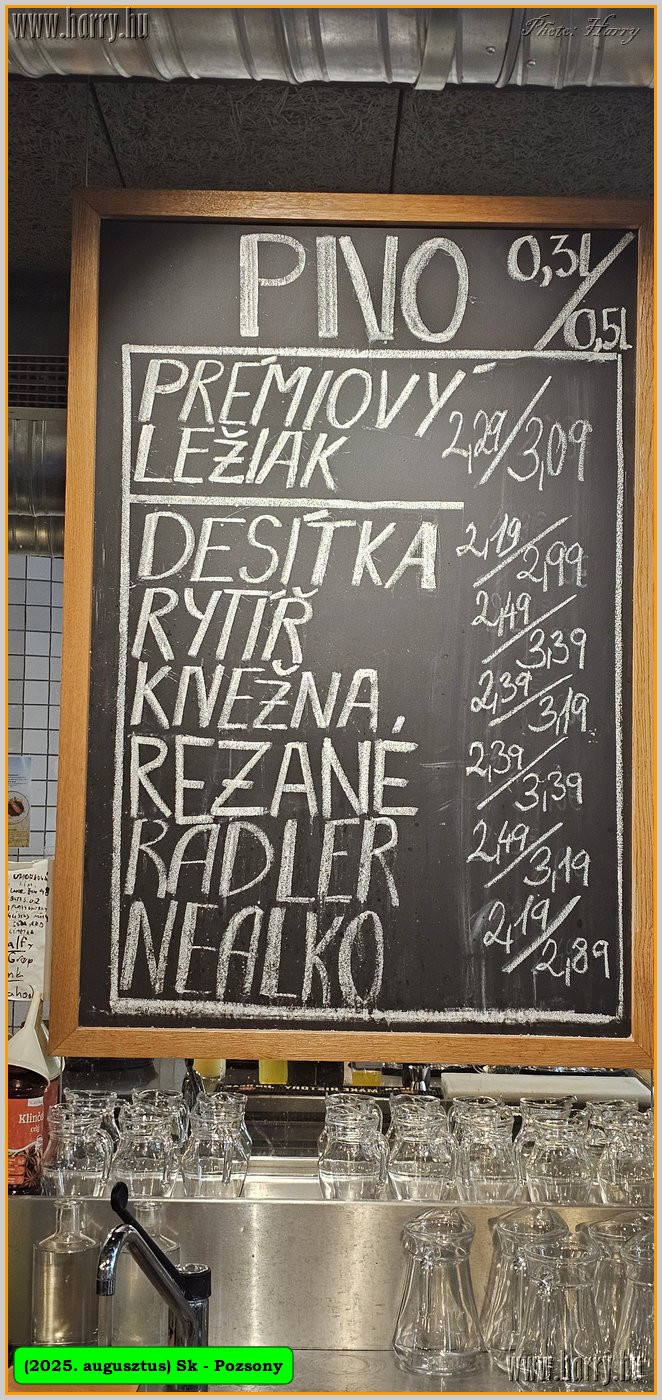 www.harry.hu
Photo: Harry
PIVO 0,3l/0,5l
PRÉMIOVÝ
LEŽIAK 2,29/3,09
DESÍTKA 2,19/2,99
RYTÍŘ 2,49/3,39
KNEŽNA 2,39/3,19
REZANÉ 2,39/3,39
RADLER 2,49/3,19
NEALKO 2,19/2,89
Klinče
celý
(2025. augusztus) Sk - Pozsony
www.harry.hu